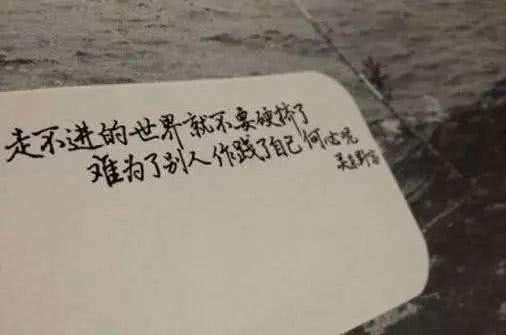 走不进的世界就不要硬挤了
难为了别人作践了自己何必呢